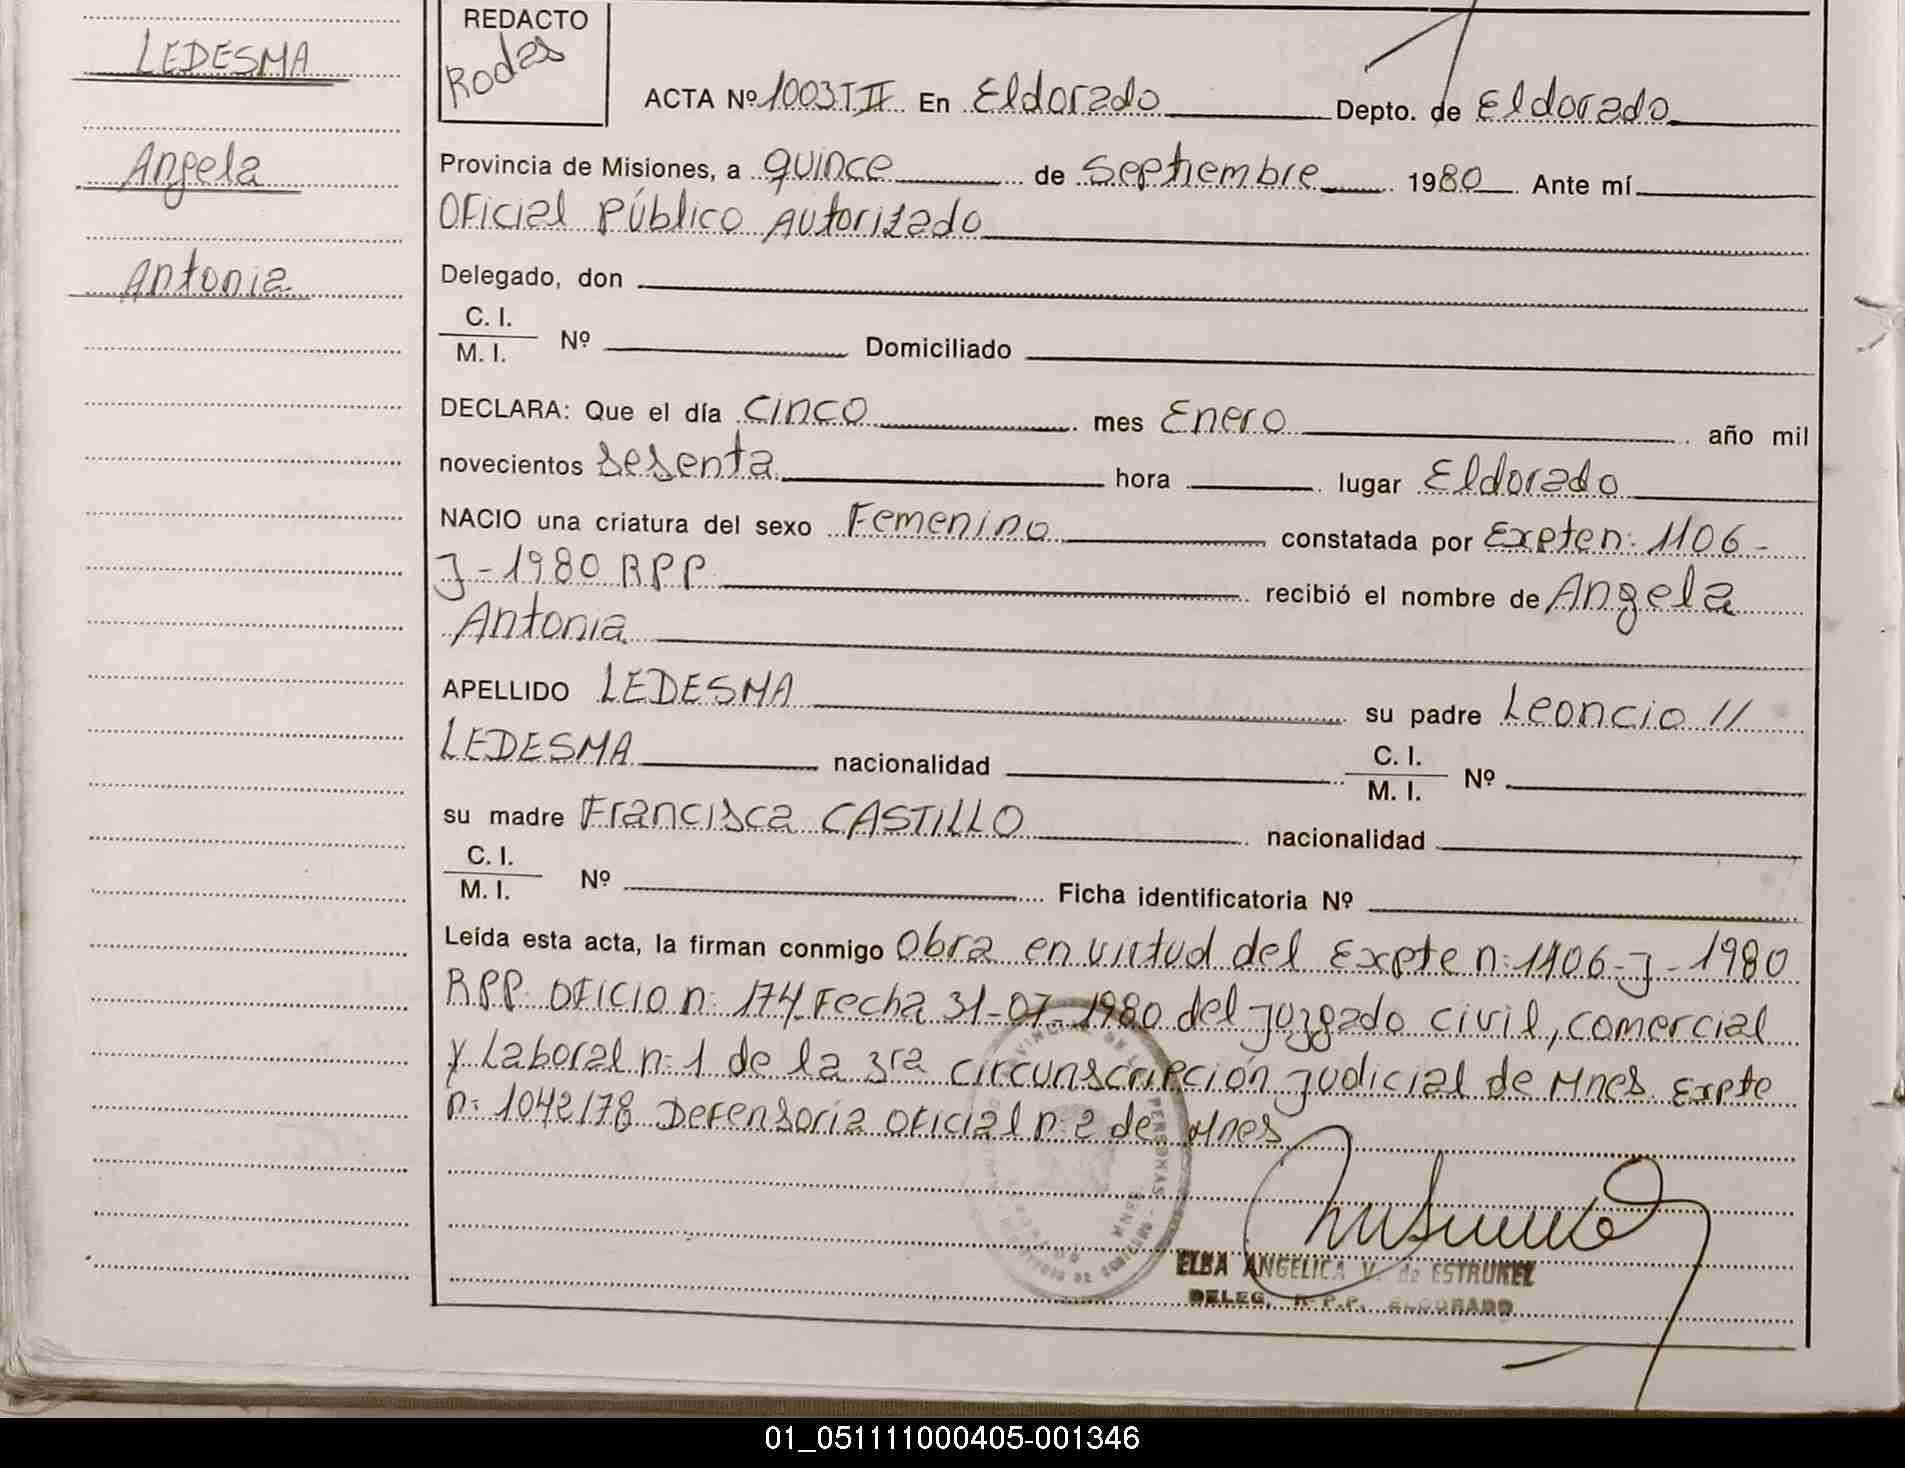 LEDESMA
Angela
Antonia
REDACTO
Rodas
ACTA Nº 1003TII En Eldorado Depto. de Eldorado
Provincia de Misiones, a quince de Septiembre 1980 Ante mí
Oficial Público Autorizado
Delegado, don
C. I.
M. I. Nº Domiciliado
DECLARA: Que el día cinco mes Enero año mil
novecientos sesenta hora lugar Eldorado
NACIO una criatura del sexo Femenino constatada por Expte n: 1106-
J-1980 RPP. recibió el nombre de Angela
Antonia
APELLIDO LEDESMA su padre Leoncio //
LEDESMA nacionalidad C. I. M. I. Nº
su madre Francisca CASTILLO nacionalidad
C. I.
M. I. Nº Ficha identificatoria Nº
Leída esta acta, la firman conmigo Obra en virtud del Expte n: 1106-J-1980
RPP. Oficio n: 174 Fecha 31-07-1980 del Juzgado civil, comercial
y Laboral n: 1 de la 3ra circunscripción judicial de Mnes. Expte
n: 1042/78 Defensoría Oficial n: 2 de Mnes
ELBA ANGELICA V. de ESTRUKEL
DELEG. R.P.P. ELDORADO
01_051111000405-001346